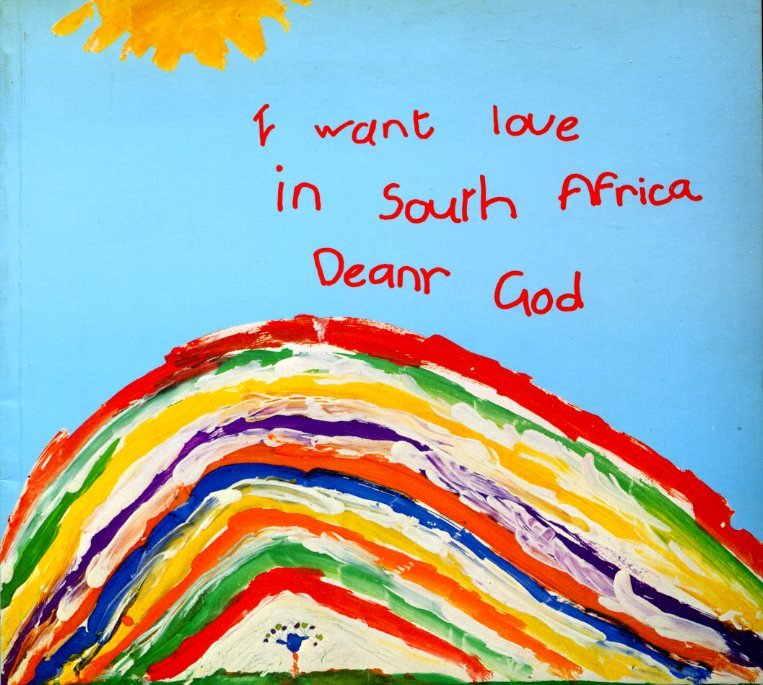 I want love
in South Africa
Deanr God